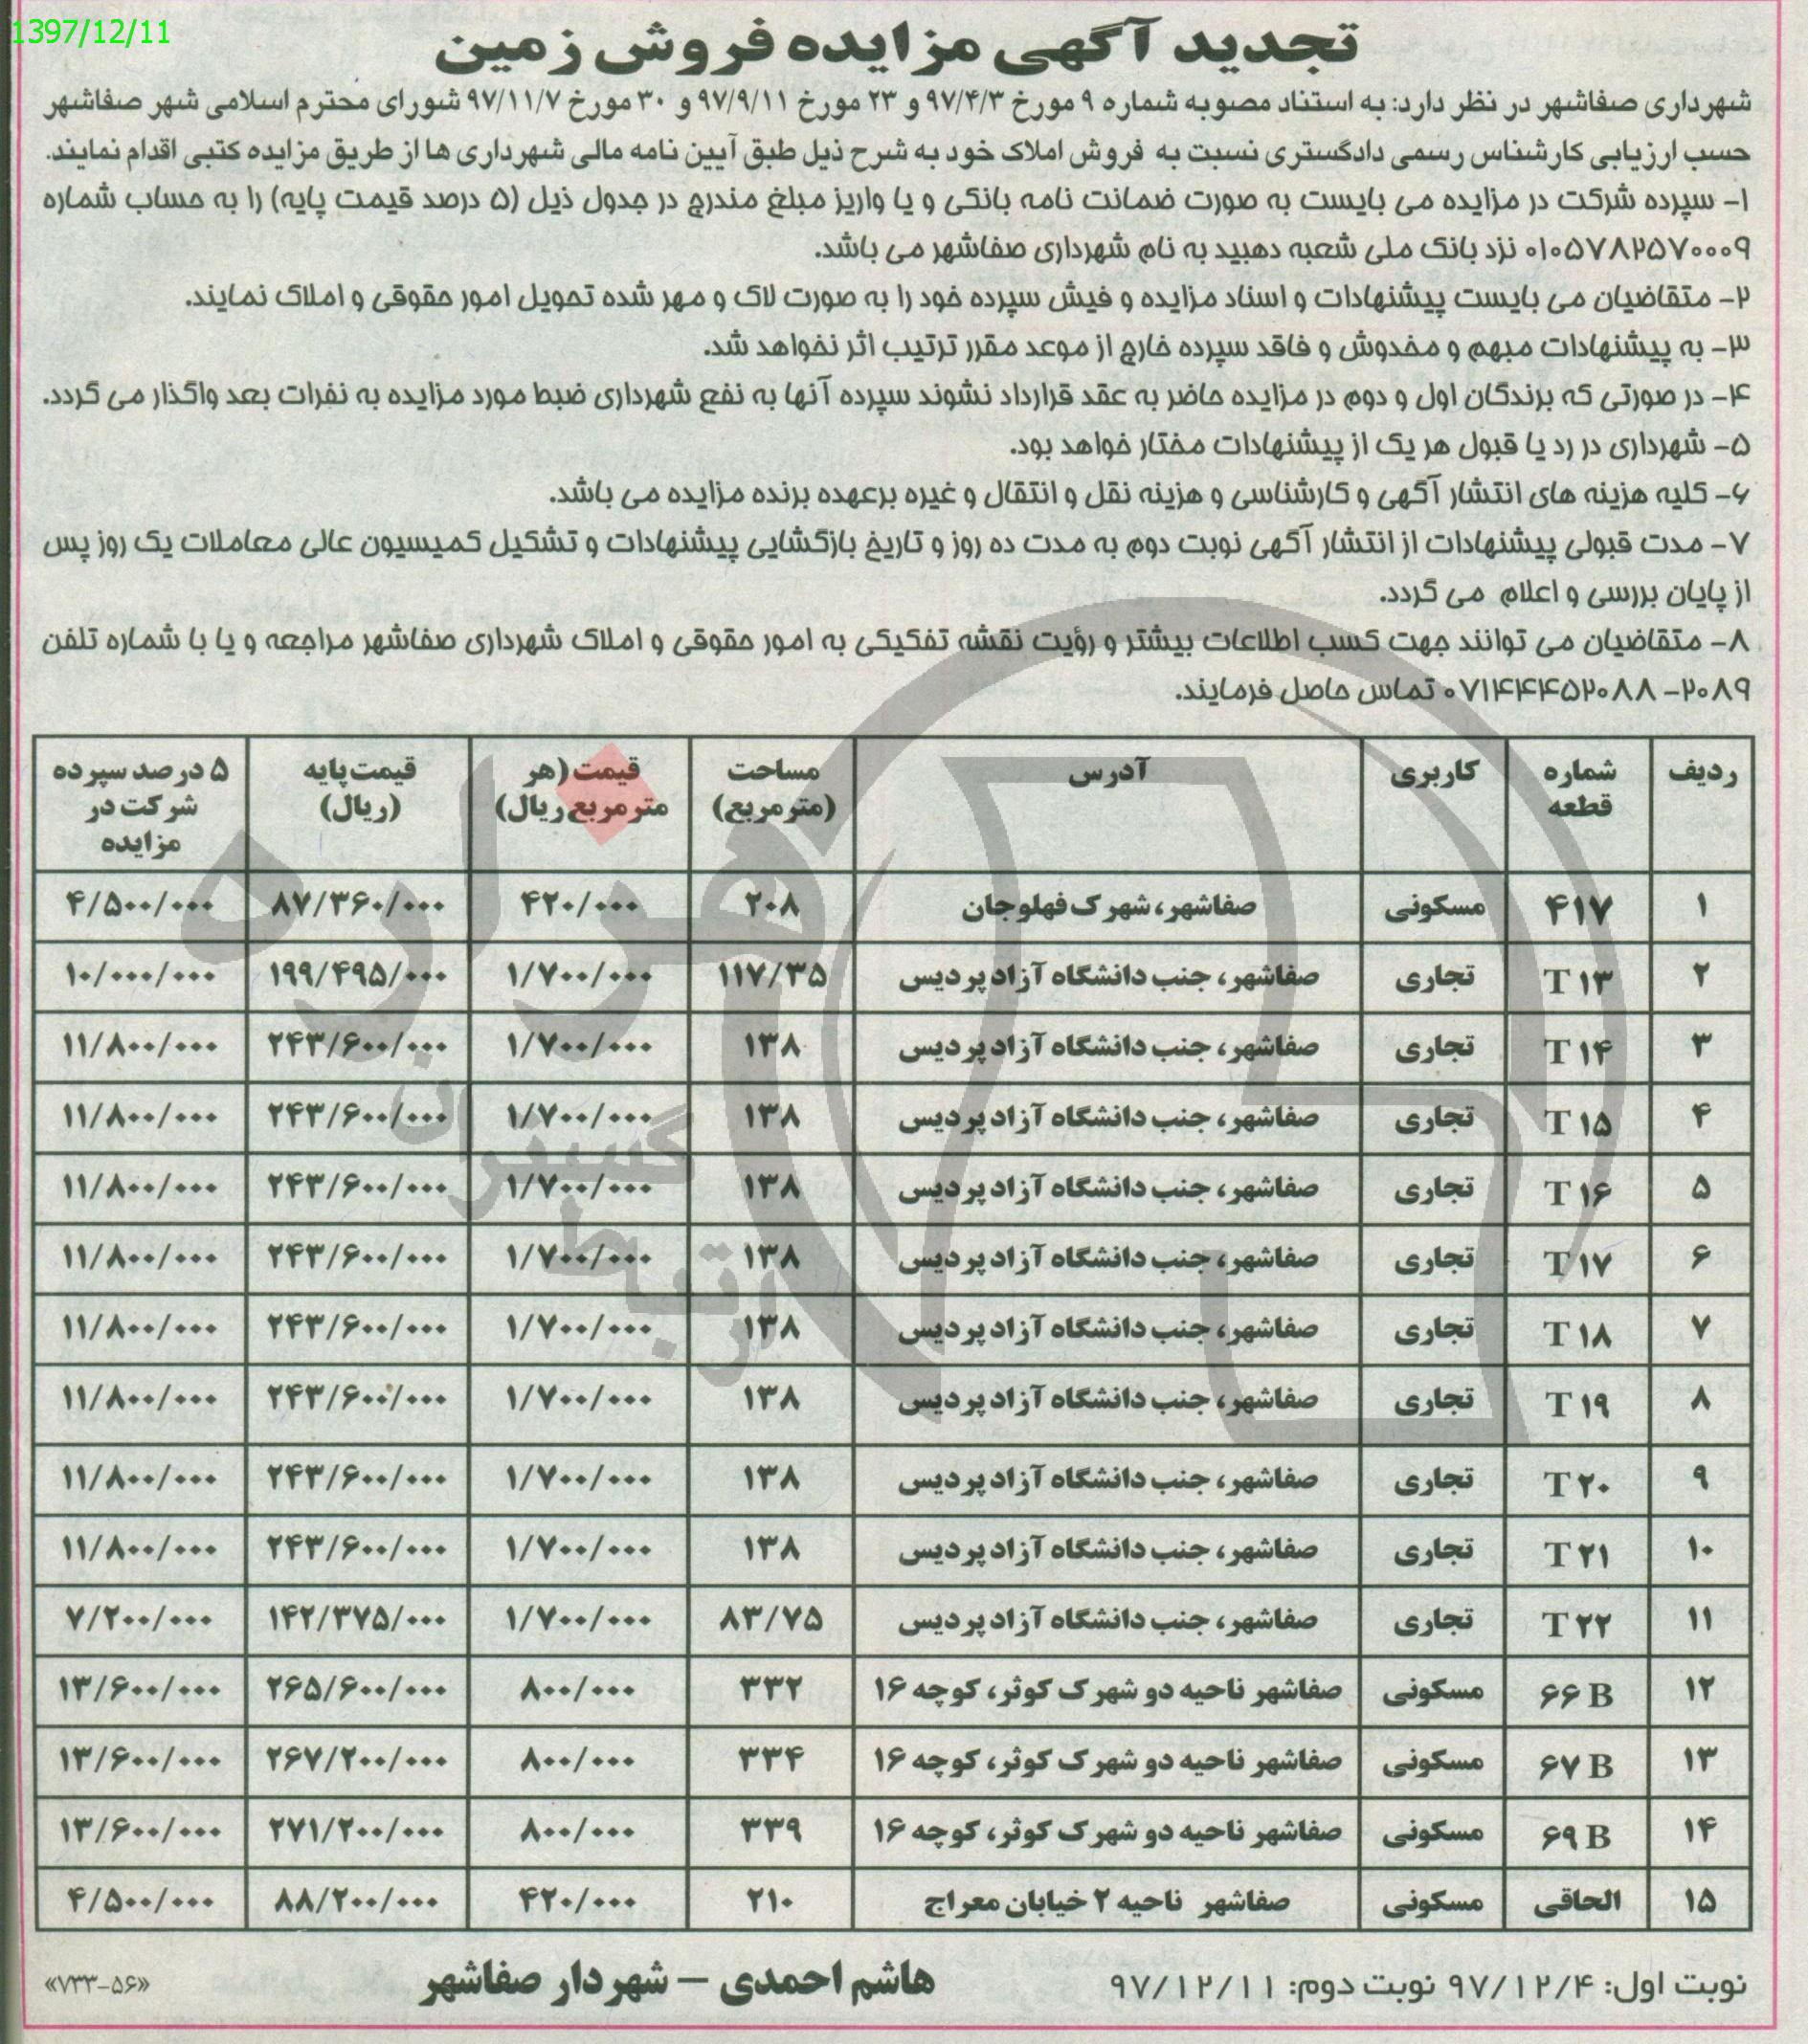 1397/12/11
تجدید آگهی مزایده فروش زمین
شهرداری صفاشهر در نظر دارد: به استناد مصوبه شماره ۹ مورخ ۹۷/۴/۳ و ۲۳ مورخ ۹۷/۹/۱۱ و ۳۰ مورخ ۹۷/۱۱/۷ شورای محترم اسلامی شهر صفاشهر
حسب ارزیابی کارشناس رسمی دادگستری نسبت به فروش املاک خود به شرح ذیل طبق آیین نامه مالی شهرداری ها از طریق مزایده کتبی اقدام نمایند.
۱- سپرده شرکت در مزایده می بایست به صورت ضمانت نامه بانکی و یا واریز مبلغ مندرج در جدول ذیل (۵ درصد قیمت پایه) را به حساب شماره
۰۱۰۵۷۸۲۵۷۰۰۰۹ نزد بانک ملی شعبه دهبید به نام شهرداری صفاشهر می باشد.
۲- متقاضیان می بایست پیشنهادات و اسناد مزایده و فیش سپرده خود را به صورت لاک و مهر شده تحویل امور حقوقی و املاک نمایند.
۳- به پیشنهادات مبهم و مخدوش و فاقد سپرده خارج از موعد مقرر ترتیب اثر نخواهد شد.
۴- در صورتی که برندگان اول و دوم در مزایده حاضر به عقد قرارداد نشوند سپرده آنها به نفع شهرداری ضبط مورد مزایده به نفرات بعد واگذار می گردد.
۵- شهرداری در رد یا قبول هر یک از پیشنهادات مختار خواهد بود.
۶- کلیه هزینه های انتشار آگهی و کارشناسی و هزینه نقل و انتقال و غیره برعهده برنده مزایده می باشد.
۷- مدت قبولی پیشنهادات از انتشار آگهی نوبت دوم به مدت ده روز و تاریخ بازگشایی پیشنهادات و تشکیل کمیسیون عالی معاملات یک روز پس
از پایان بررسی و اعلام می گردد.
۸- متقاضیان می توانند جهت کسب اطلاعات بیشتر و رؤیت نقشه تفکیکی به امور حقوقی و املاک شهرداری صفاشهر مراجعه و یا با شماره تلفن
۲۰۸۹-۰۷۱۴۴۴۵۲۰۸۸ تماس حاصل فرمایند.
ردیف شماره قطعه کاربری آدرس مساحت (مترمربع) قیمت (هر مترمربع ریال) قیمت پایه (ریال) ۵ درصد سپرده شرکت در مزایده
۱ ۴۱۷ مسکونی صفاشهر، شهرک فهلوجان ۲۰۸ ۴۲۰/۰۰۰ ۸۷/۳۶۰/۰۰۰ ۴/۵۰۰/۰۰۰
۲ T۱۳ تجاری صفاشهر، جنب دانشگاه آزاد پردیس ۱۱۷/۳۵ ۱/۷۰۰/۰۰۰ ۱۹۹/۴۹۵/۰۰۰ ۱۰/۰۰۰/۰۰۰
۳ T۱۴ تجاری صفاشهر، جنب دانشگاه آزاد پردیس ۱۳۸ ۱/۷۰۰/۰۰۰ ۲۴۳/۶۰۰/۰۰۰ ۱۱/۸۰۰/۰۰۰
۴ T۱۵ تجاری صفاشهر، جنب دانشگاه آزاد پردیس ۱۳۸ ۱/۷۰۰/۰۰۰ ۲۴۳/۶۰۰/۰۰۰ ۱۱/۸۰۰/۰۰۰
۵ T۱۶ تجاری صفاشهر، جنب دانشگاه آزاد پردیس ۱۳۸ ۱/۷۰۰/۰۰۰ ۲۴۳/۶۰۰/۰۰۰ ۱۱/۸۰۰/۰۰۰
۶ T۱۷ تجاری صفاشهر، جنب دانشگاه آزاد پردیس ۱۳۸ ۱/۷۰۰/۰۰۰ ۲۴۳/۶۰۰/۰۰۰ ۱۱/۸۰۰/۰۰۰
۷ T۱۸ تجاری صفاشهر، جنب دانشگاه آزاد پردیس ۱۳۸ ۱/۷۰۰/۰۰۰ ۲۴۳/۶۰۰/۰۰۰ ۱۱/۸۰۰/۰۰۰
۸ T۱۹ تجاری صفاشهر، جنب دانشگاه آزاد پردیس ۱۳۸ ۱/۷۰۰/۰۰۰ ۲۴۳/۶۰۰/۰۰۰ ۱۱/۸۰۰/۰۰۰
۹ T۲۰ تجاری صفاشهر، جنب دانشگاه آزاد پردیس ۱۳۸ ۱/۷۰۰/۰۰۰ ۲۴۳/۶۰۰/۰۰۰ ۱۱/۸۰۰/۰۰۰
۱۰ T۲۱ تجاری صفاشهر، جنب دانشگاه آزاد پردیس ۱۳۸ ۱/۷۰۰/۰۰۰ ۲۴۳/۶۰۰/۰۰۰ ۱۱/۸۰۰/۰۰۰
۱۱ T۲۲ تجاری صفاشهر، جنب دانشگاه آزاد پردیس ۸۳/۷۵ ۱/۷۰۰/۰۰۰ ۱۴۲/۳۷۵/۰۰۰ ۷/۲۰۰/۰۰۰
۱۲ ۶۶B مسکونی صفاشهر ناحیه دو شهرک کوثر، کوچه ۱۶ ۳۳۲ ۸۰۰/۰۰۰ ۲۶۵/۶۰۰/۰۰۰ ۱۳/۶۰۰/۰۰۰
۱۳ ۶۷B مسکونی صفاشهر ناحیه دو شهرک کوثر، کوچه ۱۶ ۳۳۴ ۸۰۰/۰۰۰ ۲۶۷/۲۰۰/۰۰۰ ۱۳/۶۰۰/۰۰۰
۱۴ ۶۹B مسکونی صفاشهر ناحیه دو شهرک کوثر، کوچه ۱۶ ۳۳۹ ۸۰۰/۰۰۰ ۲۷۱/۲۰۰/۰۰۰ ۱۳/۶۰۰/۰۰۰
۱۵ الحاقی مسکونی صفاشهر ناحیه ۲ خیابان معراج ۲۱۰ ۴۲۰/۰۰۰ ۸۸/۲۰۰/۰۰۰ ۴/۵۰۰/۰۰۰
نوبت اول: ۹۷/۱۲/۴ نوبت دوم: ۹۷/۱۲/۱۱ هاشم احمدی – شهردار صفاشهر «۷۳۳-۵۶»
هزاره
گستران
ارتباط